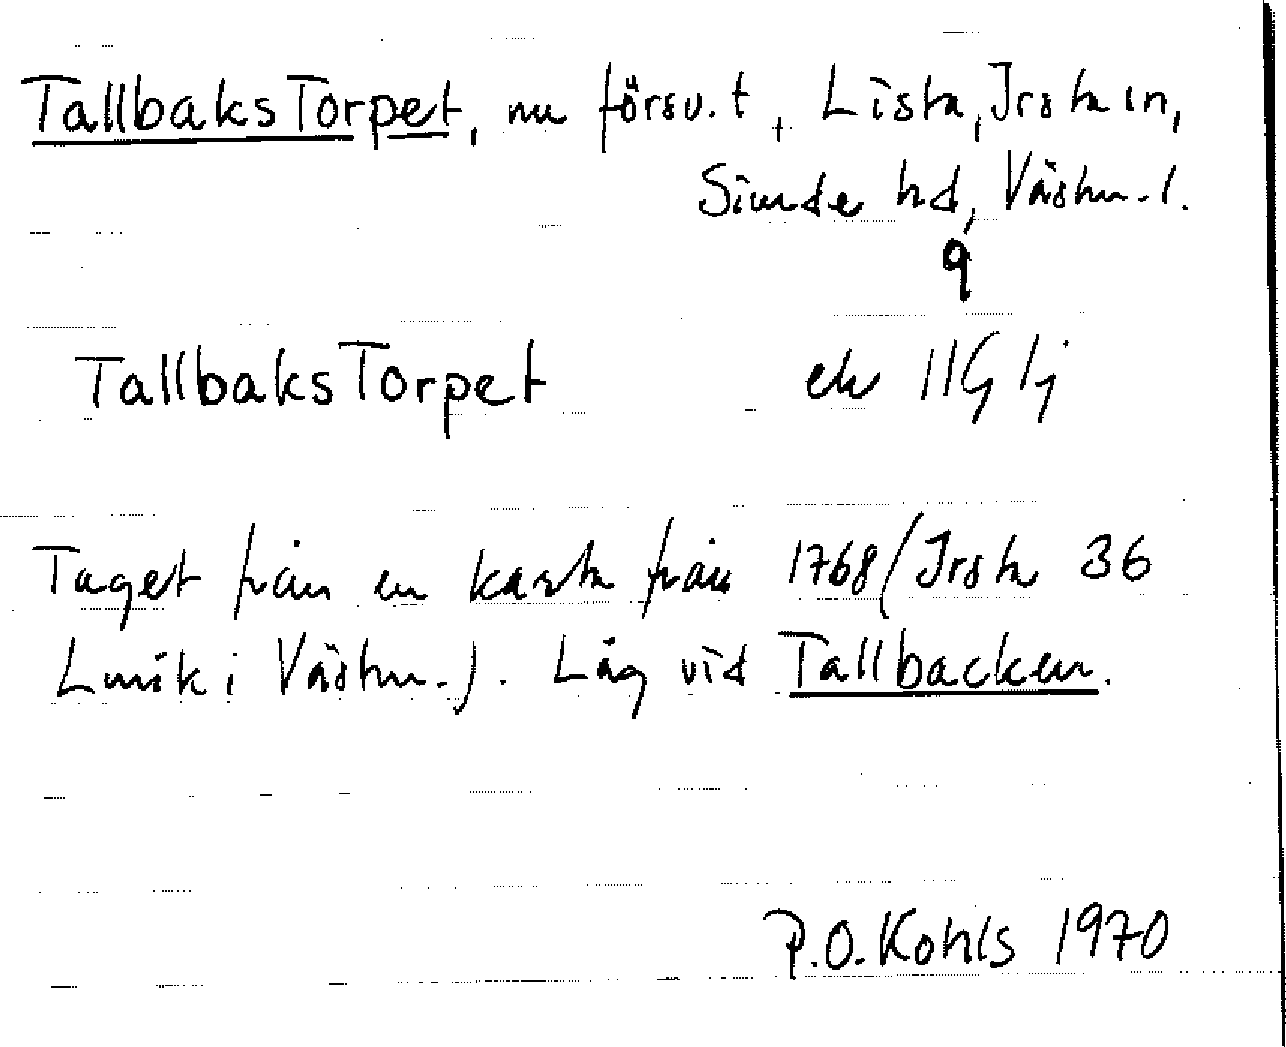 TallbaksTorpet, nu försv. t, Lista, Irsta sn,
Siende hd, Västm. l.
9
TallbaksTorpet ek 11G 1j
Taget från en karta från 1768 (Irsta 36
Lmsk i Västm.). Låg vid Tallbacken.
P.O. Kohls 1970